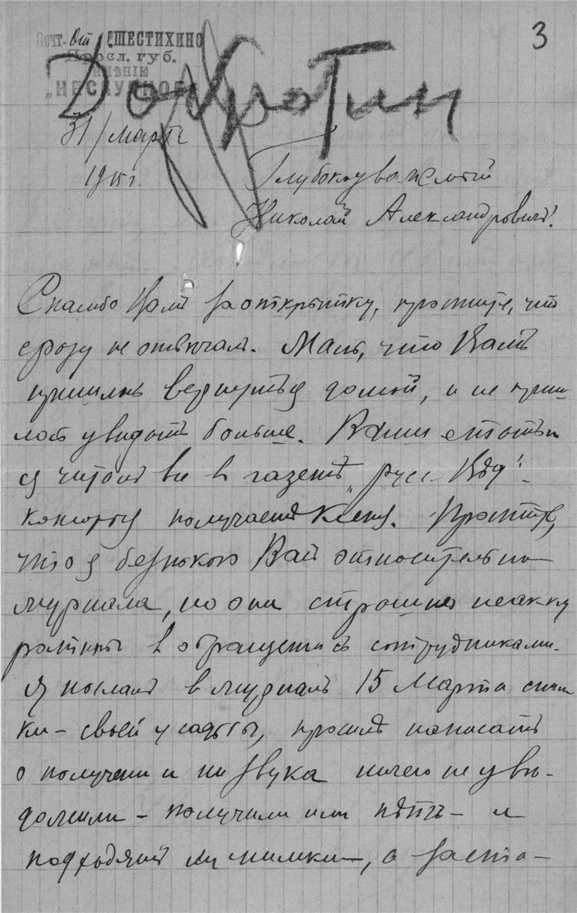 3
Почт. От. ШЕСТИХИНО
Яросл. губ.
ИМѢНІЕ
Добротин
31/марта
Глубокоуважаемый
Николай Александровичъ!
Спасибо Вамъ за открытку, простите, что
сразу не отвѣчалъ. Жаль, что Вамъ
пришлось вернуться домой, и не приш-
лось увидѣть больше. Ваши статьи
я читалъ всѣ в газетѣ „Русс. Вѣд".
которую получаетъ Простите,
что я безпокою Вас относительно
журнала, но они страшно неакку
ратны в обращеніи съ сотрудниками.
Я послалъ в журналъ 15 Марта сним
ки – своей усадьбы, просилъ написать
о полученіи и ни звука ничего не увѣ-
домили – получили или нѣтъ – и
подходящи ли снимки –, а